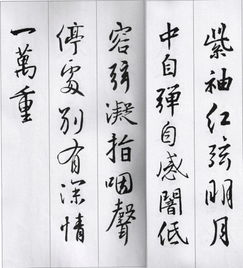 紫袖紅弦明月
中自彈自感闇低
容弦凝指咽聲
停處别有深情
一萬重